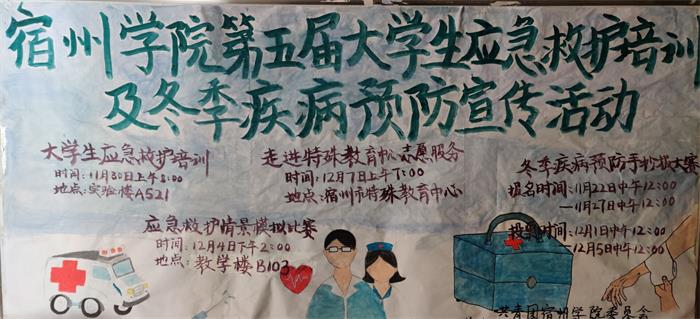 宿州学院第五届大学生应急救护培训
及冬季疾病预防宣传活动
大学生应急救护培训
时间:11月30日上午8:00
地点:实验楼A521
走进特殊教育中心志愿服务
时间:12月7日上午
地点:宿州市特殊教育中心
冬季疾病预防手抄报大赛
报名时间:11月22日中午12:00
—11月27日中午12:00
12月1日中午12:00
—12月5日中午12:00
应急救护情景模拟比赛
时间:12月4日下午2:00
地点:教学楼B103
共青团宿州学院委员会